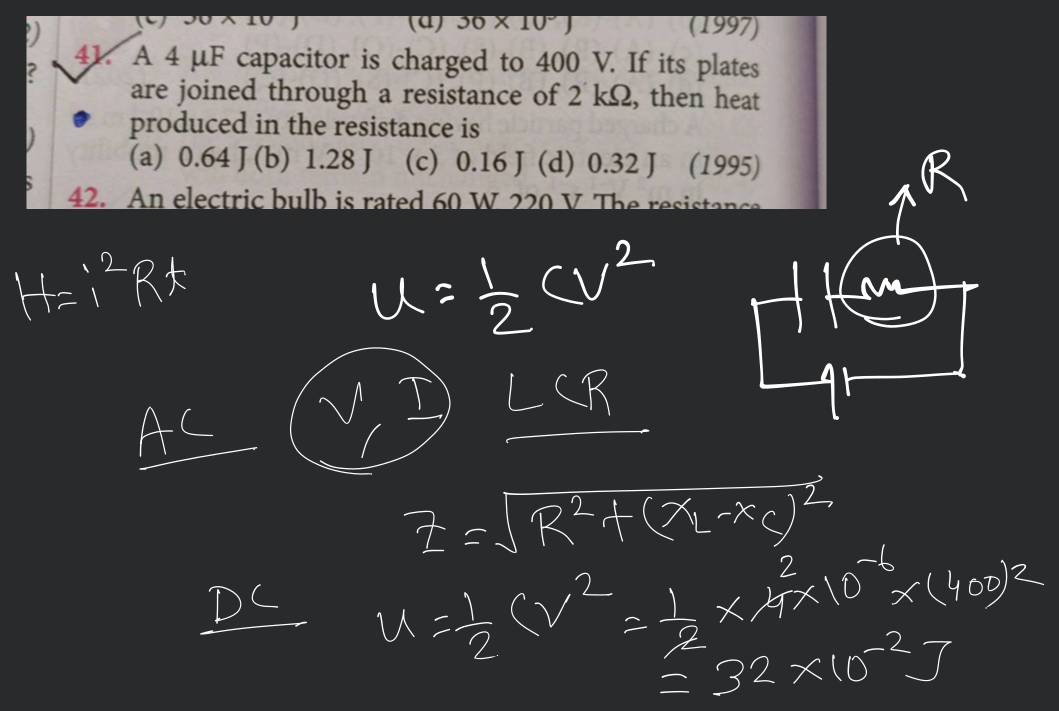 (c) 36 × 10⁵ J (d) 36 × 10⁵ J (1997)
41. A 4 μF capacitor is charged to 400 V. If its plates
are joined through a resistance of 2 kΩ, then heat
produced in the resistance is
(a) 0.64 J (b) 1.28 J (c) 0.16 J (d) 0.32 J (1995)
42. An electric bulb is rated 60 W, 220 V. The resistance
R
H = i²Rt
U = 1/2 CV²
AC V, I LCR
Z = √R² + (X_L - X_C)²
DC U = 1/2 CV² = 1/2 × 4 2 × 10⁻⁶ × (400)²
= 32 × 10⁻² J